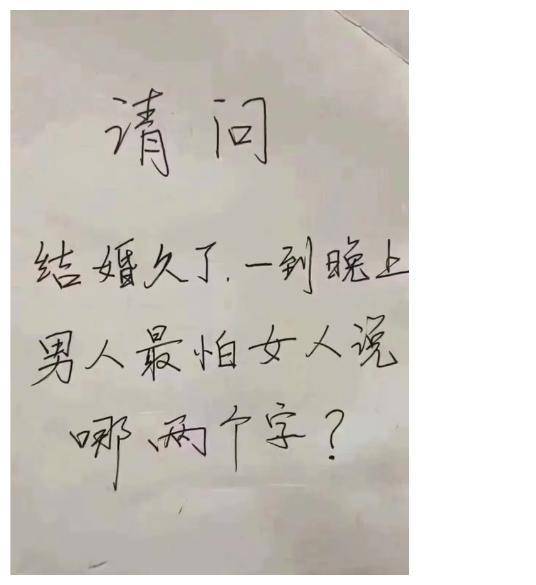 请问
结婚久了.一到晚上
男人最怕女人说
哪两个字?